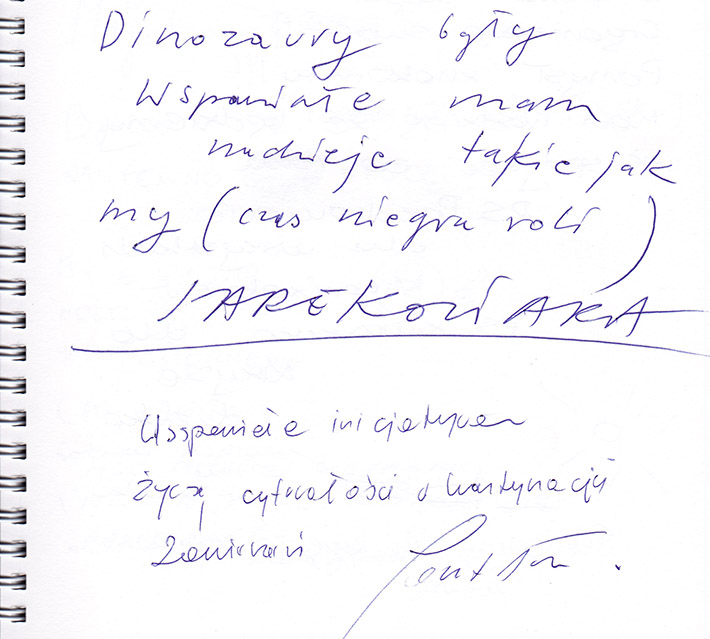 Dinozaury były
Wspaniałe mam
nadzieje takie jak
my (czas niegra roli)
JAREK
Wspaniała inicjatywa
życzę wytrwałości w kontynuacji